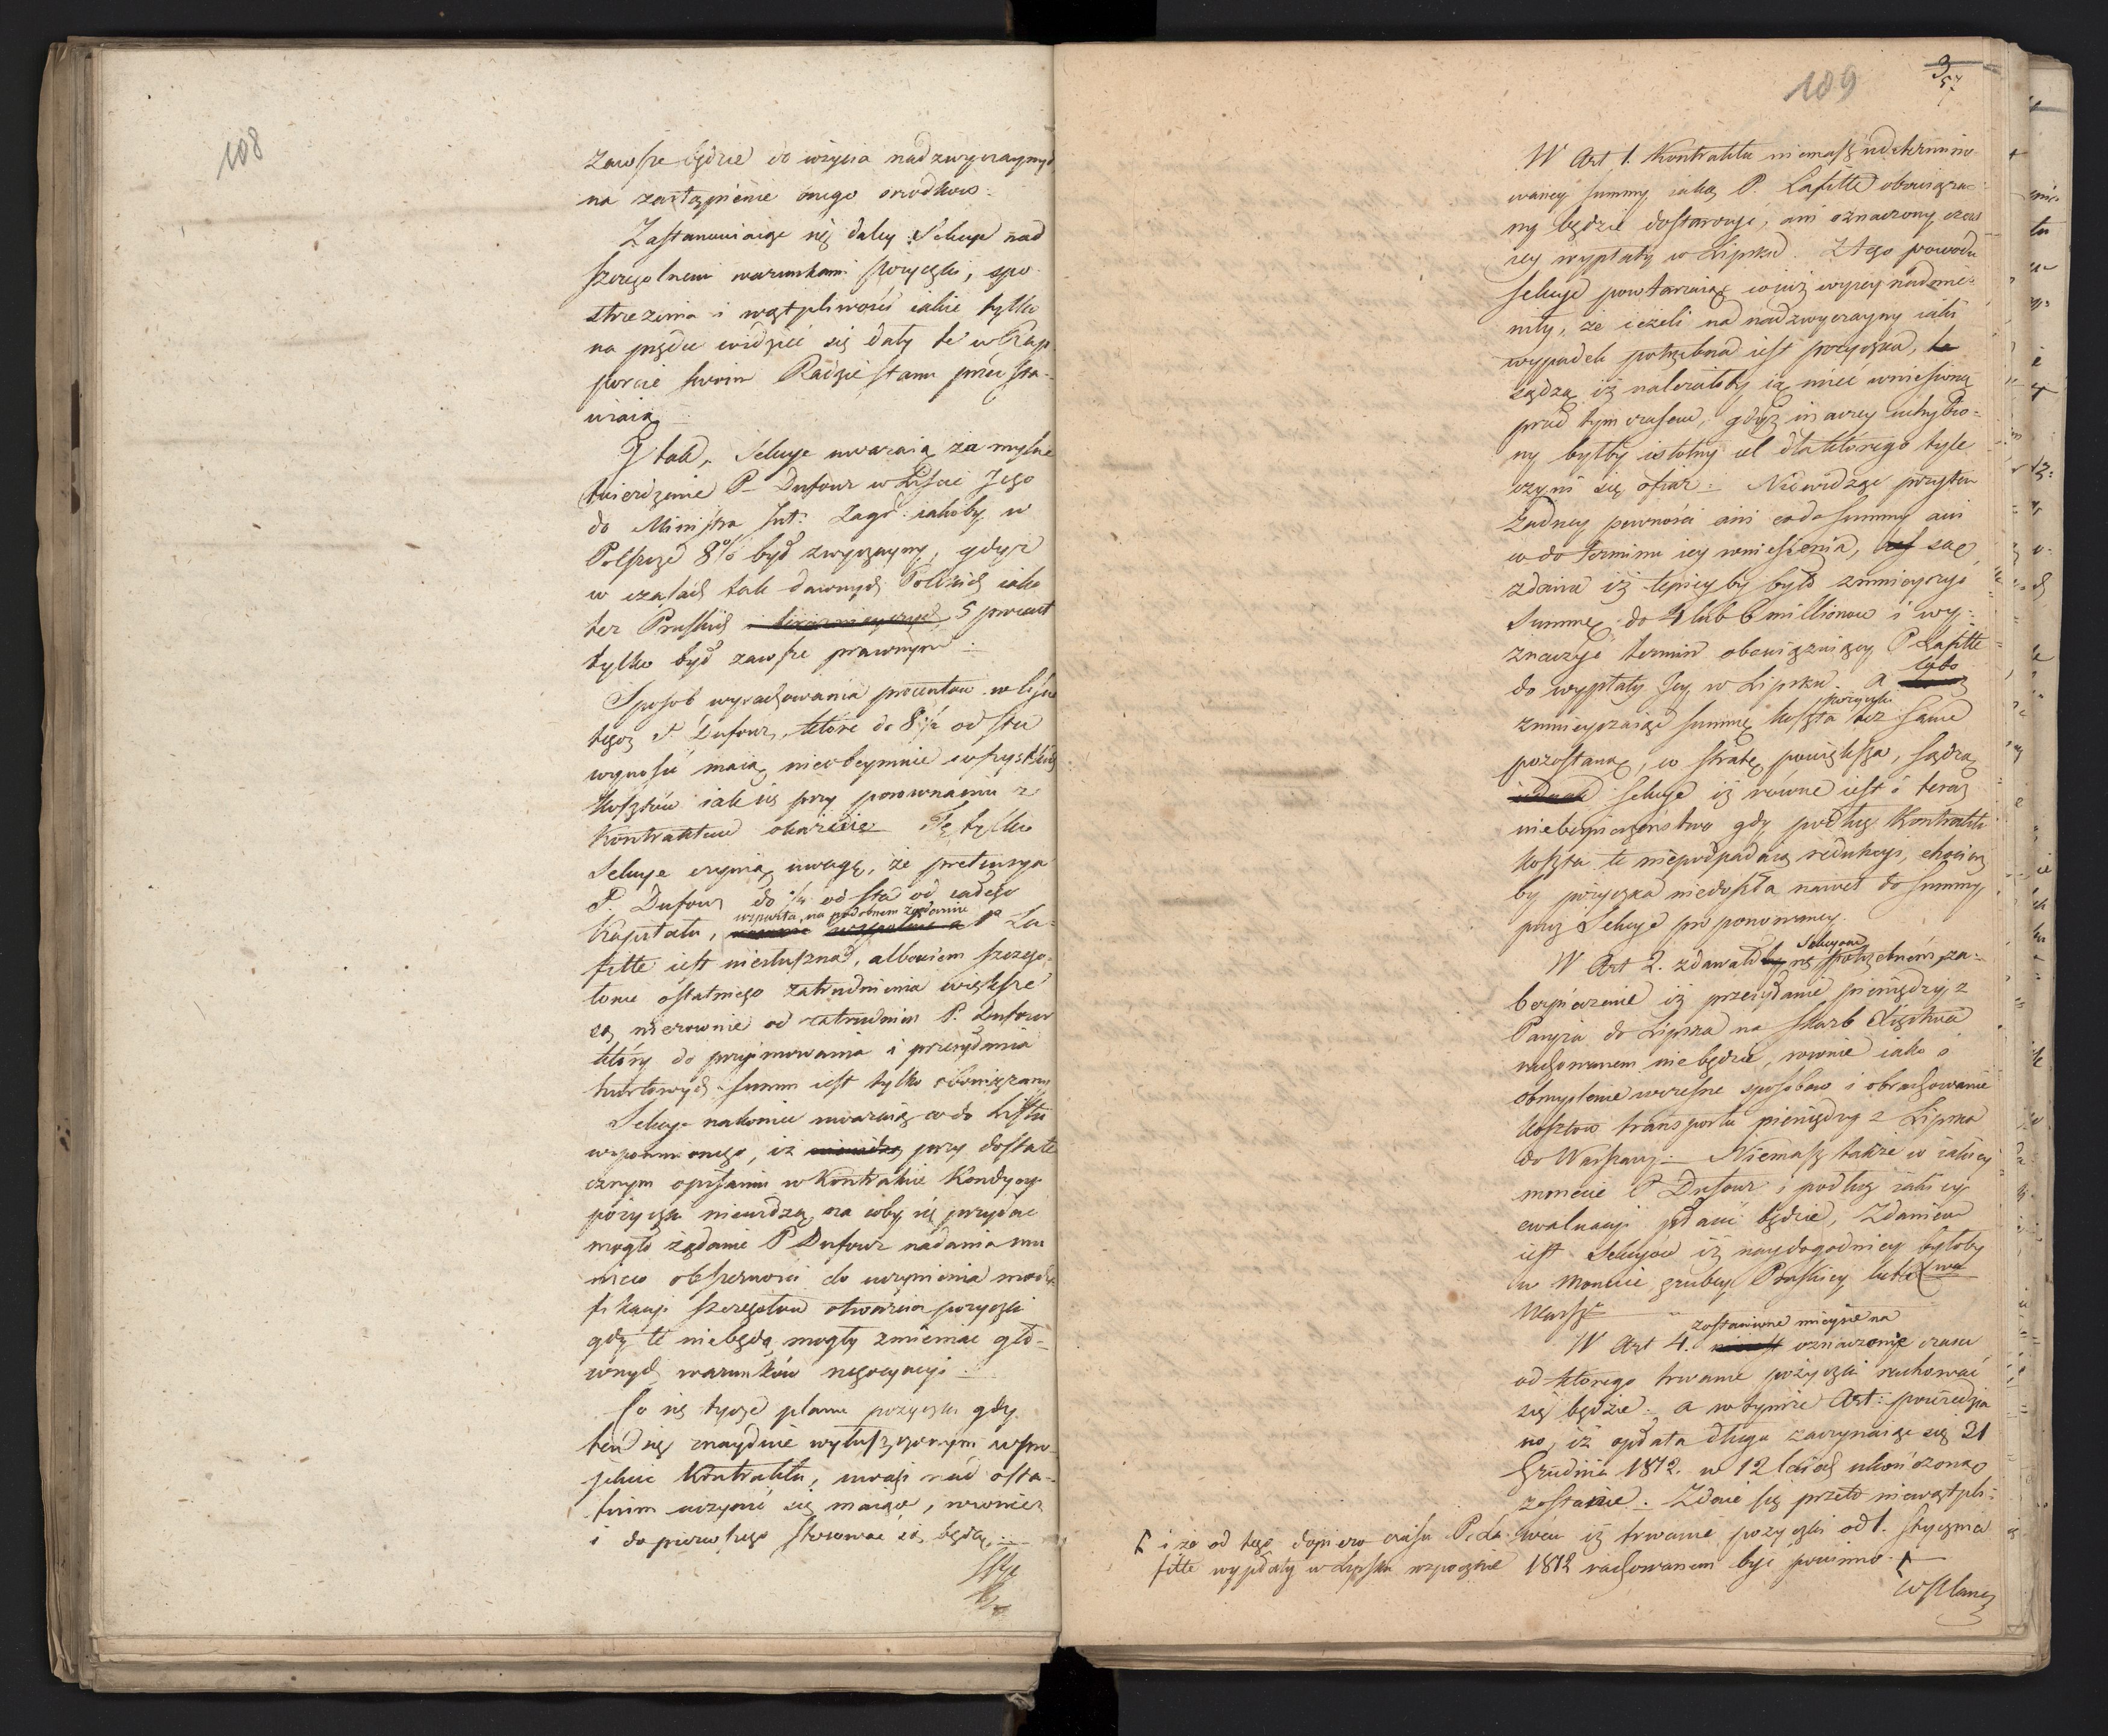 108
zawsze będzie do użycia nadzwyczaynych
na zastąpienie onego srodkow.
Zastanawiaiąc się daley Sekcye nad
szczegolnemi warunkami pożyczki, spo-
strzeżenia i wątpliwości iakie tylko
na prędce widzieć się dały te w Rap-
porcie swoim Radzie Stanu przedsta-
wiaią.
I tak, Sekcye uważaią za mylne
twierdzenie P. Dufour w Liście Jego
do Ministra Int: Zagr: iakoby w
Polszcze 8% był zwyczayny, gdyż
w czasach tak dawnych Polskich iako
też Pruskich 5 procent
tylko był zawsze prawnym.
Sposob wyrachowania procentow w liście
tegoż P. Dufour, które do 8 1/2 od sta
wynosić maią, nieobeymuie wszystkich
kosztów iak się przy porownaniu z
Kontraktem okaże. Tę tylko
Sekcye czynią uwagę, że pretensya
P. Dufour do 1/4 od sta od całego
wsparta, na podobnem żądaniu
Kapitału, P. La-
fitte iest niesłuszna, albowiem szczego-
lowe ostatniego zatrudnienia większe
są nierownie od zatrudnień P. Dufour
który do przyimowania i przesyłania
hurtowych summ iest tylko obowiązany
Sekcye nakoniec uważaią co do Listu
wspomnionego, iż przy dostate-
cznym opisaniu w Kontrakcie Kondycyi
pożyczki niewidzą na coby się przydać
mogło żądanie P Dufour nadania mu
nieco obszerności do uczynienia mody-
fikacyi szczegołow otwarcia pożyczki
gdy te niebędą mogły zmieniać głó-
wnych warunków negocyacyi.
Co się tycze planu pożyczki gdy
ten się znayduie wyłuszczonym w pro-
jekcie Kontraktu, uwagi nad osta-
tnim uczynić się maiące, rownież
i do pierwszego stosować się będą.
109
3
57
W Art 1. Kontraktu niemasz udetermino-
waney summy iaką P. Lafitte obowiąza-
ny będzie dostarczyć, ani oznaczony czas
iey wypłaty w Lipsku. Z tego powodu
Sekcye powtarzaiąc co iuż wyżey nadmie-
niły, że ieżeli na nadzwyczayny iaki
wypadek potrzebna iest pożyczka,
sądzą iż należałoby ią mieć wniesioną
przed tym czasem, gdyż inaczey uchybio-
ny byłby istotny cel dla którego tyle
czyni się ofiar. Niewidząc przytem
żadney pewności ani co do summy ani
co do terminu iey wniesienia, są
zdania iż lepiey by było zmnieyszyć
Summę do 4 lub 6 millionow i wy-
znaczyć termin obowiązuiący P. Lafitte
do wypłaty Jey w Lipsku. A lubo
pożyczki
zmnieyszaiąc summę koszta też same
pozostaną, i stratę powiększą, sądzą
Sekcye iż równe iest i teraz
niebezpieczeństwo gdy podług Kontraktu
koszta te niepodpadaią redukcyi, chociaż
by pożyczka niedoszła nawet do summy
przez Sekcye proponowaney.
Sekcyom
W Art 2. zdawało się potrzebném za-
bezpieczenie iż przesyłanie pieniędzy z
Paryża do Lipska na skarb Xięstwa
rachowanem nie będzie, rownie iako o
obmyślenie wcześne sposobow i obrachowanie
kosztow transportu pieniędzy z Lipska
do Warszawy. Niemasz także w iakiey
monecie P. Dufour i podług iakiey
ewaluacyi płacić będzie, Zdaniem
iest Sekcyów iż naydogodniey byłoby
w monecie grubey Pruskiey lub
Warsz:
zostawione mieysce na
W Art 4. oznaczenie czasu
od którego trwanie pożyczki rachować
się będzie. a w tymże Art: powiedzia-
no, iż opłata długu zaczynaiąc się 31
Grudnia 1812. w 12 latach ukończoną
zostanie. Zdaie się przeto niewątpli-
wem iż trwanie pożyczki od 1. stycznia
1812 rachowanem być powinno.
i że od tego dopiero czasu P. La-
fitte wypłaty w Lipsku rozpocznie
W Planie